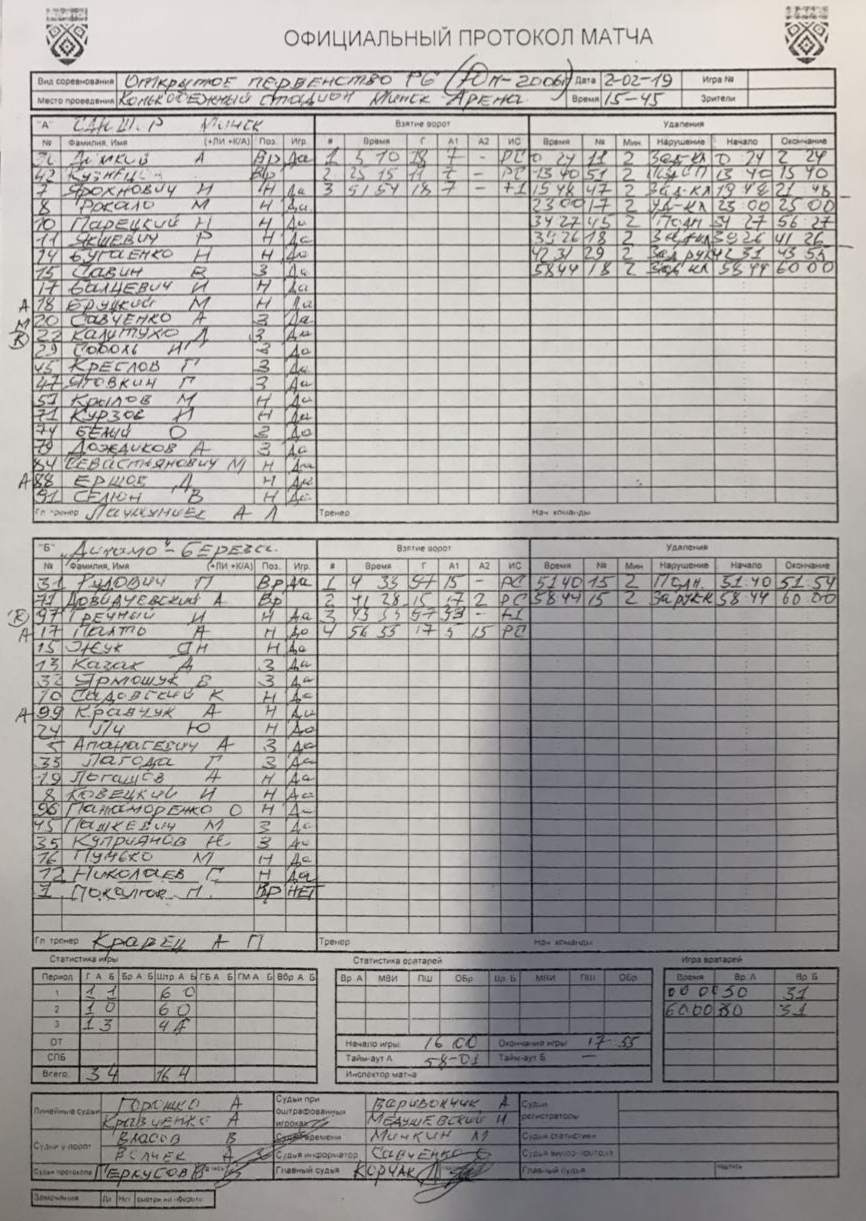 ОФИЦИАЛЬНЫЙ ПРОТОКОЛ МАТЧА
Вид соревнования Открытое первенство РБ (Юн-2006) Дата 2-02-19 Игра №
Место проведения Конькобежный стадион Минск-Арена Время 15-45 Зрители
"А" Минск Взятие ворот Удаления
№ Фамилия, Имя (+ЛИ +К/А) Поз. Игр. # Время Г А1 А2 ИС Время № Мин. Нарушение Начало Окончание
А Вр Да 1 5 10 18 7 - РС 0 24 11 2 0 24 2 24
42 Вр 2 25 15 11 7 - РС 13 40 51 2 13 40 15 40
7 Ярохнович И Н Да 3 51 54 18 7 - +1 15 48 47 2 19 48 21 48
8 Рокало М Н Да 23 00 17 2 Уд-кл 23 00 25 00
10 Парецкий Н Н Да 34 27 45 2 Подн 34 27 56 27
11 Якшевич Р Н Да 39 26 18 2 39 26 41 26
14 Бугаенко Н Н Да 42 31 29 2 Зад рук 42 31 43 55
15 Савин В З Да 58 44 18 2 Зад кл 58 44 60 00
17 Балцевич И Н Да
А 18 Еруцкий М Н Да
20 Савченко А З Да
К 22 Калитухо Д З Да
29 Соболь И З Да
45 Креслов Г З Да
47 Яговкин Г З Да
51 Крылов М Н Да
71 Курзов И Н Да
74 Белый О З Да
79 Дождиков А З Да
84 Севастьянович М Н Да
А 88 Ершов Д Н Да
91 Селюн В Н Да
Гл тренер А Л Тренер Нач команды
"Б" "Динамо"-Береза Взятие ворот Удаления
№ Фамилия, Имя (+ЛИ +К/А) Поз. Игр. # Время Г А1 А2 ИС Время № Мин Нарушение Начало Окончание
31 Рудович П Вр Да 1 4 33 97 15 - РС 51 40 15 2 Подн. 51 40 51 54
71 Довидчевский А Вр 2 41 28 15 17 2 РС 58 44 15 2 58 44 60 00
К 97 Гречный И Н Да 3 43 55 97 99 - +1
А 17 Палто А Н Да 4 56 55 17 5 15 РС
15 Жук ЯН Н Да
13 Казак Д З Да
Ярмошук В З Да
10 Садовский К Н Да
А 99 Кравчук А Н Да
24 Ю Н Да
5 Апанасевич А З Да
33 Лагода Г З Да
19 Логашов А Н Да
8 Ковецкий И Н Да
96 Панаморенко О Н Да
45 Пашкевич М З Да
35 Куприянов Н. З Да
16 Пунько М Н Да
12 Николаев Г Н Да
1 Н. Вр НЕТ
Гл тренер Кравец А П Тренер Нач команды
Статистика игры Статистика вратарей Игра вратарей
Период Г А Б Бр А Б Штр А Б ГБ А Б ГМ А Б Вбр А Б Вр А МВИ ПШ ОБр Вр. Б МВИ ПШ ОБр Время Вр. А Вр Б
1 1 1 6 0 00 00 30 31
2 1 0 6 0 60 00 30 31
3 1 3 4 4
ОТ Начало игры 16 00 Окончание игры 17-55
СПБ Тайм-аут А 58-01 Тайм-аут Б —
Всего 3 4 16 4 Инспектор матча
Линейные судьи Горошко А Судьи при оштрафованных игроках Варивончик А Судьи регистраторы
Кравченко А Медушевский И
Судьи у ворот Власов В Судья времени Мичкин М Судьи статистики
Волчек А Судья информатор Савченко Судья видео-повторов
Судья протокола Перкусов В Главный судья Корчак Главный судья подпись
Замечания Да Нет смотри на обороте